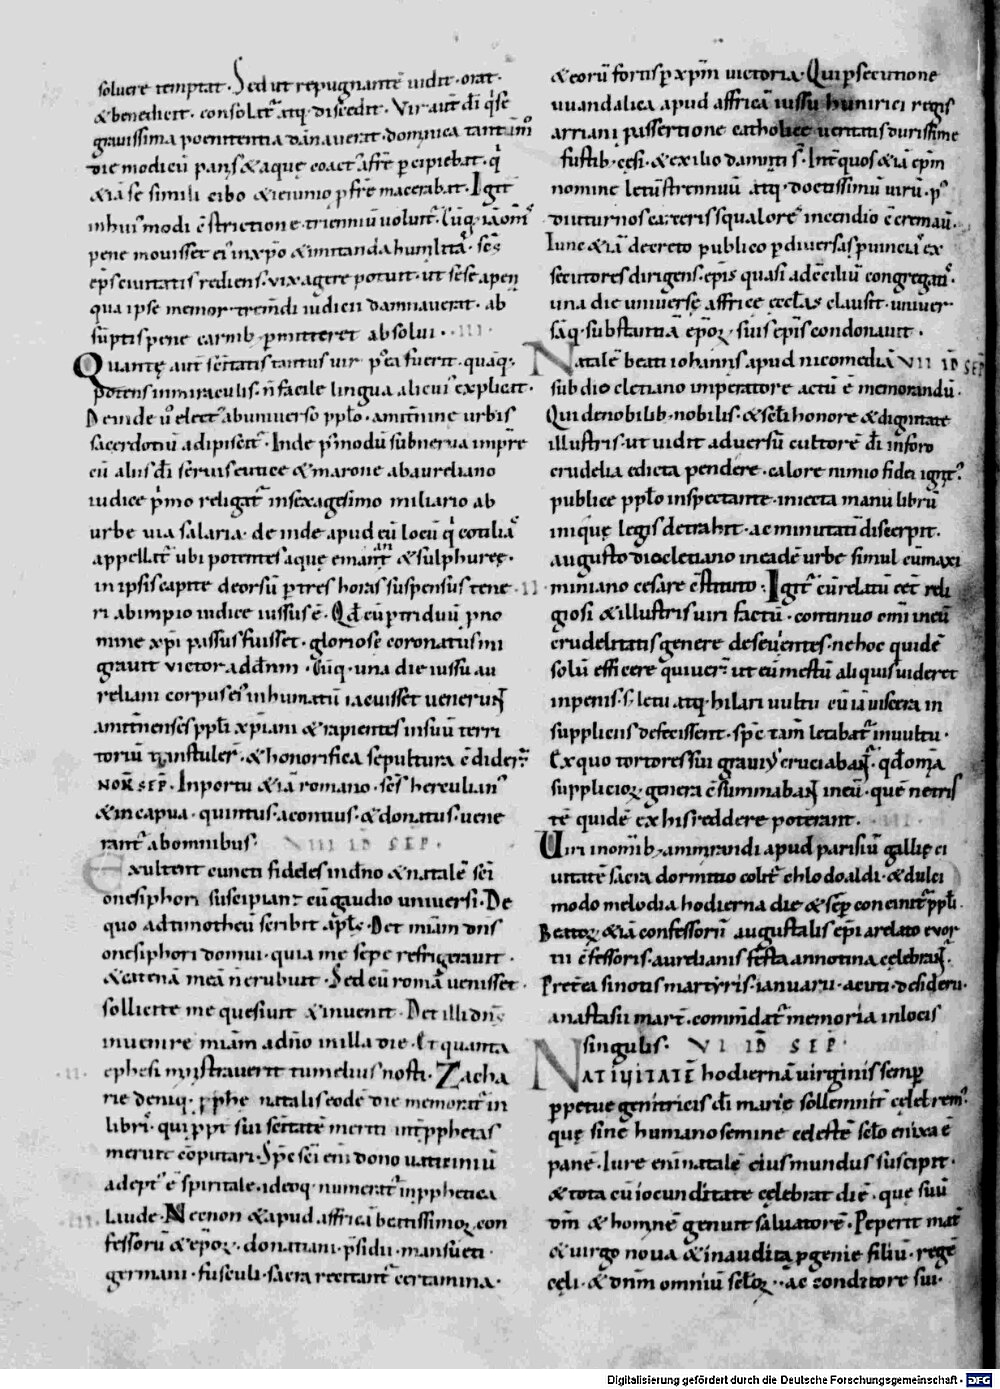 soluere temptat. Sed ut repugnantē uidit. orat.
& benedicit. consolit᷑ atq; discedit. Vir aut̄ dī q̇se
grauissima poenitentia dānauerat. dominica tantūm̊
die modicū panis & aquę coact᷑ a fr̄e percipiebat. q̇
& iā se simili cibo & ieiunio p fr̄e macerabat. Igit᷑
in hui᷒modi c̄strictione trienniū uoluit᷑. Cūq; iā om̄s
pene mouisset ei᷒ in xp̄o & imitanda humilitas. sēs
ep̄s ciuitatis rediens. uix agere potuit. ut sese a pen
qua ipse memor tremdi iudicii damnauerat. ab
sūptis pene carnib; permitteret absolui. III.
Quantę aut̄ sc̄itatis tantus uir postea fuerit. quāq;
potens in miraculis. n̄ facile lingua alicui᷒ explicit.
Deinde u᷒ elect᷒ ab uniuerso pp̄lo. amitninę urbis
sacerdotiū adipiscit᷑. Inde p᷒modū sub nerua imp̄re
cū aliis dī seruis eutice & marone ab aureliano
iudice p᷒mo religat᷑ in sexagesimo miliario ab
urbe uia salaria. deinde apud eū locū q̇ cotilias
appellat᷑ ubi potentes aquę emanant & sulphuręę.
in ipsis capite deorsū p tres horas suspensus tene
ri ab impio iudice iussus ē. Qd̄ cū p triduū p no
mine xp̄i passus fuisset. gloriose coronatus mi
grauit victor ad dn̄m. Cūq; una die iussu au
reliani corpus ei᷒ inhumatū iacuisset uenerunt
amitnenses pp̄li xp̄iani & rapientes in suū terri
toriū transtuler̄. & honorifica sepultura c̄dider̄.
NON̄ SEP̄. In portu & iā romano. sc̄s herculian᷒
& in capua. quintus. acontius. & donatus. uene
rant᷑ ab omnibus. VIII ID SEP.
Exultent cuncti fideles in dn̄o & natalē sc̄i
onesiphori suscipiant cū gaudio uniuersi. De
quo ad timotheū scribit apl̄s. Det miām dn̄s
onesiphori domui. quia me sepe refrigerauit.
& catenā meā n̄ erubuit. Sed cū romā uenisset.
sollicite me quesiuit & inuenit. Det illi dn̄s
inuenire miām a dn̄o in illa die. Et quanta
·II· ephesi ministrauerit tu melius nosti. Zacha
rie deniq; pphę natalis eodē die memorat᷑ in
libr̄. qui ppt̄ sui sc̄itatē meriti int̄ pphetas
meruit cōputari. Sp̄c sc̄i eni dono uaticiniū
adept᷒ ē spiritale. ideoq; numerat᷑ in pphetica
·III· laude. Necnon & apud affricā beatissimoꝝ con
fessorū & ep̄oꝝ. donatiani. p̄sidii. mansueti.
germani. fusculi. sacra recitant᷑ certamina.
& eorū fortis p xp̄m uictoria. Qui psecutione
uuandalica apud affricā iussu hunirici regis
arriani p assertione catholicę ueritatis durissime
fustib; cęsi. & exilio damnati s̄. Int̄ quos & iā ep̄m
nomine letū strennuū atq; doctissimū uirū. p᷒
diuturnos carceris squalores incendio c̄cremau̅.
Tunc & iā decreto publico p diuersas puincias ex
secutores dirigens. ep̄is quasi ad c̄ciliū congregatis.
una die uniuersę affricę ecclas clausit. uniuer
sāq; substantiā ep̄oꝝ suis ep̄is condonauit.
Natalē beati iohannis apud nicomediā VII ID SEP̄
sub diocletiano imperatore actū ē memorandū.
Qui de nobilib; nobilis. & scl̄i honore & dignitate
illustris. ut uidit aduersū cultorē dī in foro
crudelia edicta pendere. calore nimio fidei ignit᷒
publice pp̄lo inspectante. iniecta manu librū
iniquę legis detrahit. ac minutatī discerpit.
augusto diocletiano in eadē urbe simul cū maxi
·II· miniano cesare c̄stituto. Igit᷑ cū relatū eēt reli
giosi & illustris uiri factū. continuo omi in eū
crudelitatis genere deseuientes. ne hoc quidē
solū efficere quiuer̄. ut eū męstū aliquis uideret
in penis. s; lętu atq; hilari uultu cū iā uiscera in
suppliciis defecissent. sp̄c tam̄ letabat᷑ in uultu.
Ex quo tortores sui grauius cruciabant. qd̄ om̄ia
supplicioꝝ genera c̄summabant in eū. quē ne tris
tē quidē ex his reddere poterant. III.
Uiri in om̄ib; ammirandi apud parisiū gallię ci
uitatē sacra dormitio colit᷑ chlodoaldi. & dulci
modo melodia hodierna die & semp concinit᷑ pp̄li.
Beatoꝝ & iā confessorū augustalis ep̄i arelato euor
tii c̄fessoris. aurelianis festa annotina celebrant.
Pretea sinotis martyris. ianuarii. acuti. desiderii.
anastasii mart̄. commdat᷑ memoria in locis
singulis. VI ID SEP.
NATIVITATĒ hodiernā uirginis semp
p petuę genitricis dī marię sollemnit̄ celebrem᷒.
quę sine humano semine celestē scl̄o enixa ē
panē. Iure eni natalē eius mundus suscipit.
& tota cū iocunditate cęlebrat diē. que suū
dm̄ & hominē genuit saluatorē. Peperit mat̄
& uirgo noua & inaudita pgenie filiū. regē
cęli. & dn̄m omniū scl̄oꝝ. ac conditorē sui.
Digitalisierung gefördert durch die Deutsche Forschungsgemeinschaft - DFG